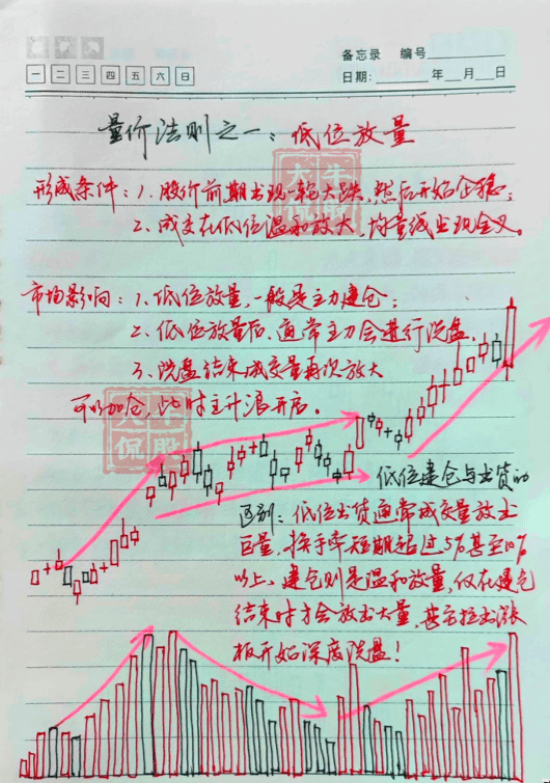 备忘录 编号
一 二 三 四 五 六 日
日期: 年 月 日
量价法则之一:低位放量
形成条件:1、股价前期出现一轮大跌,然后开始企稳;
2、成交在低位温和放大,均量线出现金叉。
市场影响:1、低位放量,一般是主力建仓;
2、低位放量后,通常主力会进行洗盘,
3、洗盘结束成交量再次放大
可以加仓,此时主升浪开启。
大牛
侃股
大牛
侃股
低位建仓与出货的
区别:低位出货通常成交量放出
巨量,换手率短期超过5%甚至10%
以上,建仓则是温和放量,仅在建仓
结束时才会放出大量,甚至拉出涨
板开始深度洗盘!